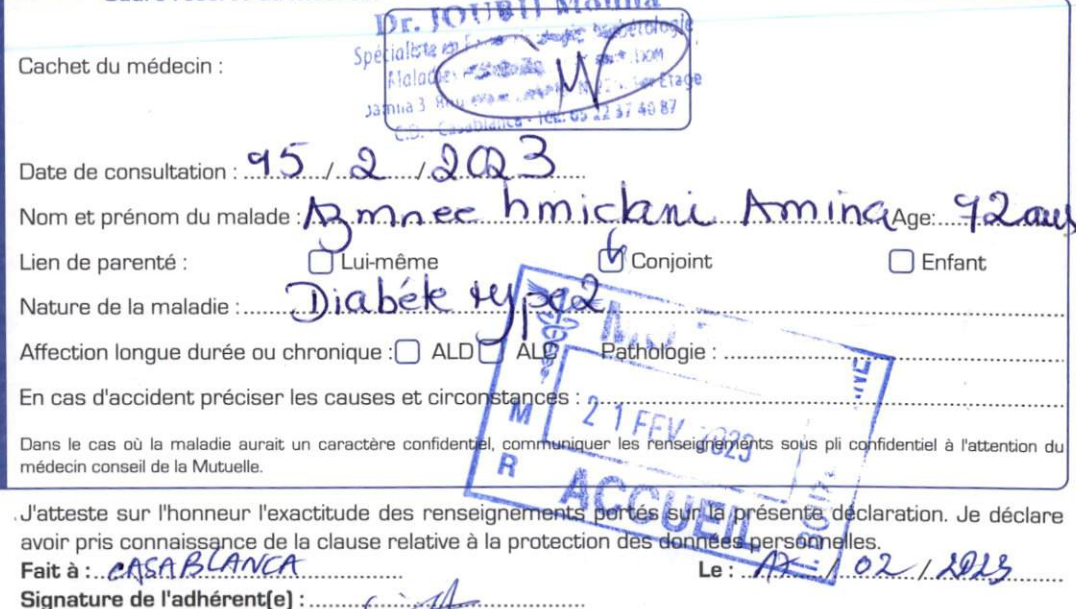 Dr. JOUBIJ Mouna
Spécialiste en
Maladies
1er Etage
Casablanca - Tél: 05 22 37 40 87
Cachet du médecin :
Date de consultation : 15 / 2 / 2023
Nom et prénom du malade : hmidani Amina Age: 72 ans
Lien de parenté : Lui-même Conjoint Enfant
Nature de la maladie : Diabéte type 2
Affection longue durée ou chronique : ALD ALC Pathologie :
En cas d'accident préciser les causes et circonstances :
M 21 FEV 2023
Dans le cas où la maladie aurait un caractère confidentiel, communiquer les renseignements sous pli confidentiel à l'attention du
médecin conseil de la Mutuelle.
R ACCUEIL
J'atteste sur l'honneur l'exactitude des renseignements portés sur la présente déclaration. Je déclare
avoir pris connaissance de la clause relative à la protection des données personnelles.
Fait à : CASABLANCA Le : 17 / 02 / 2023
Signature de l'adhérent(e) :